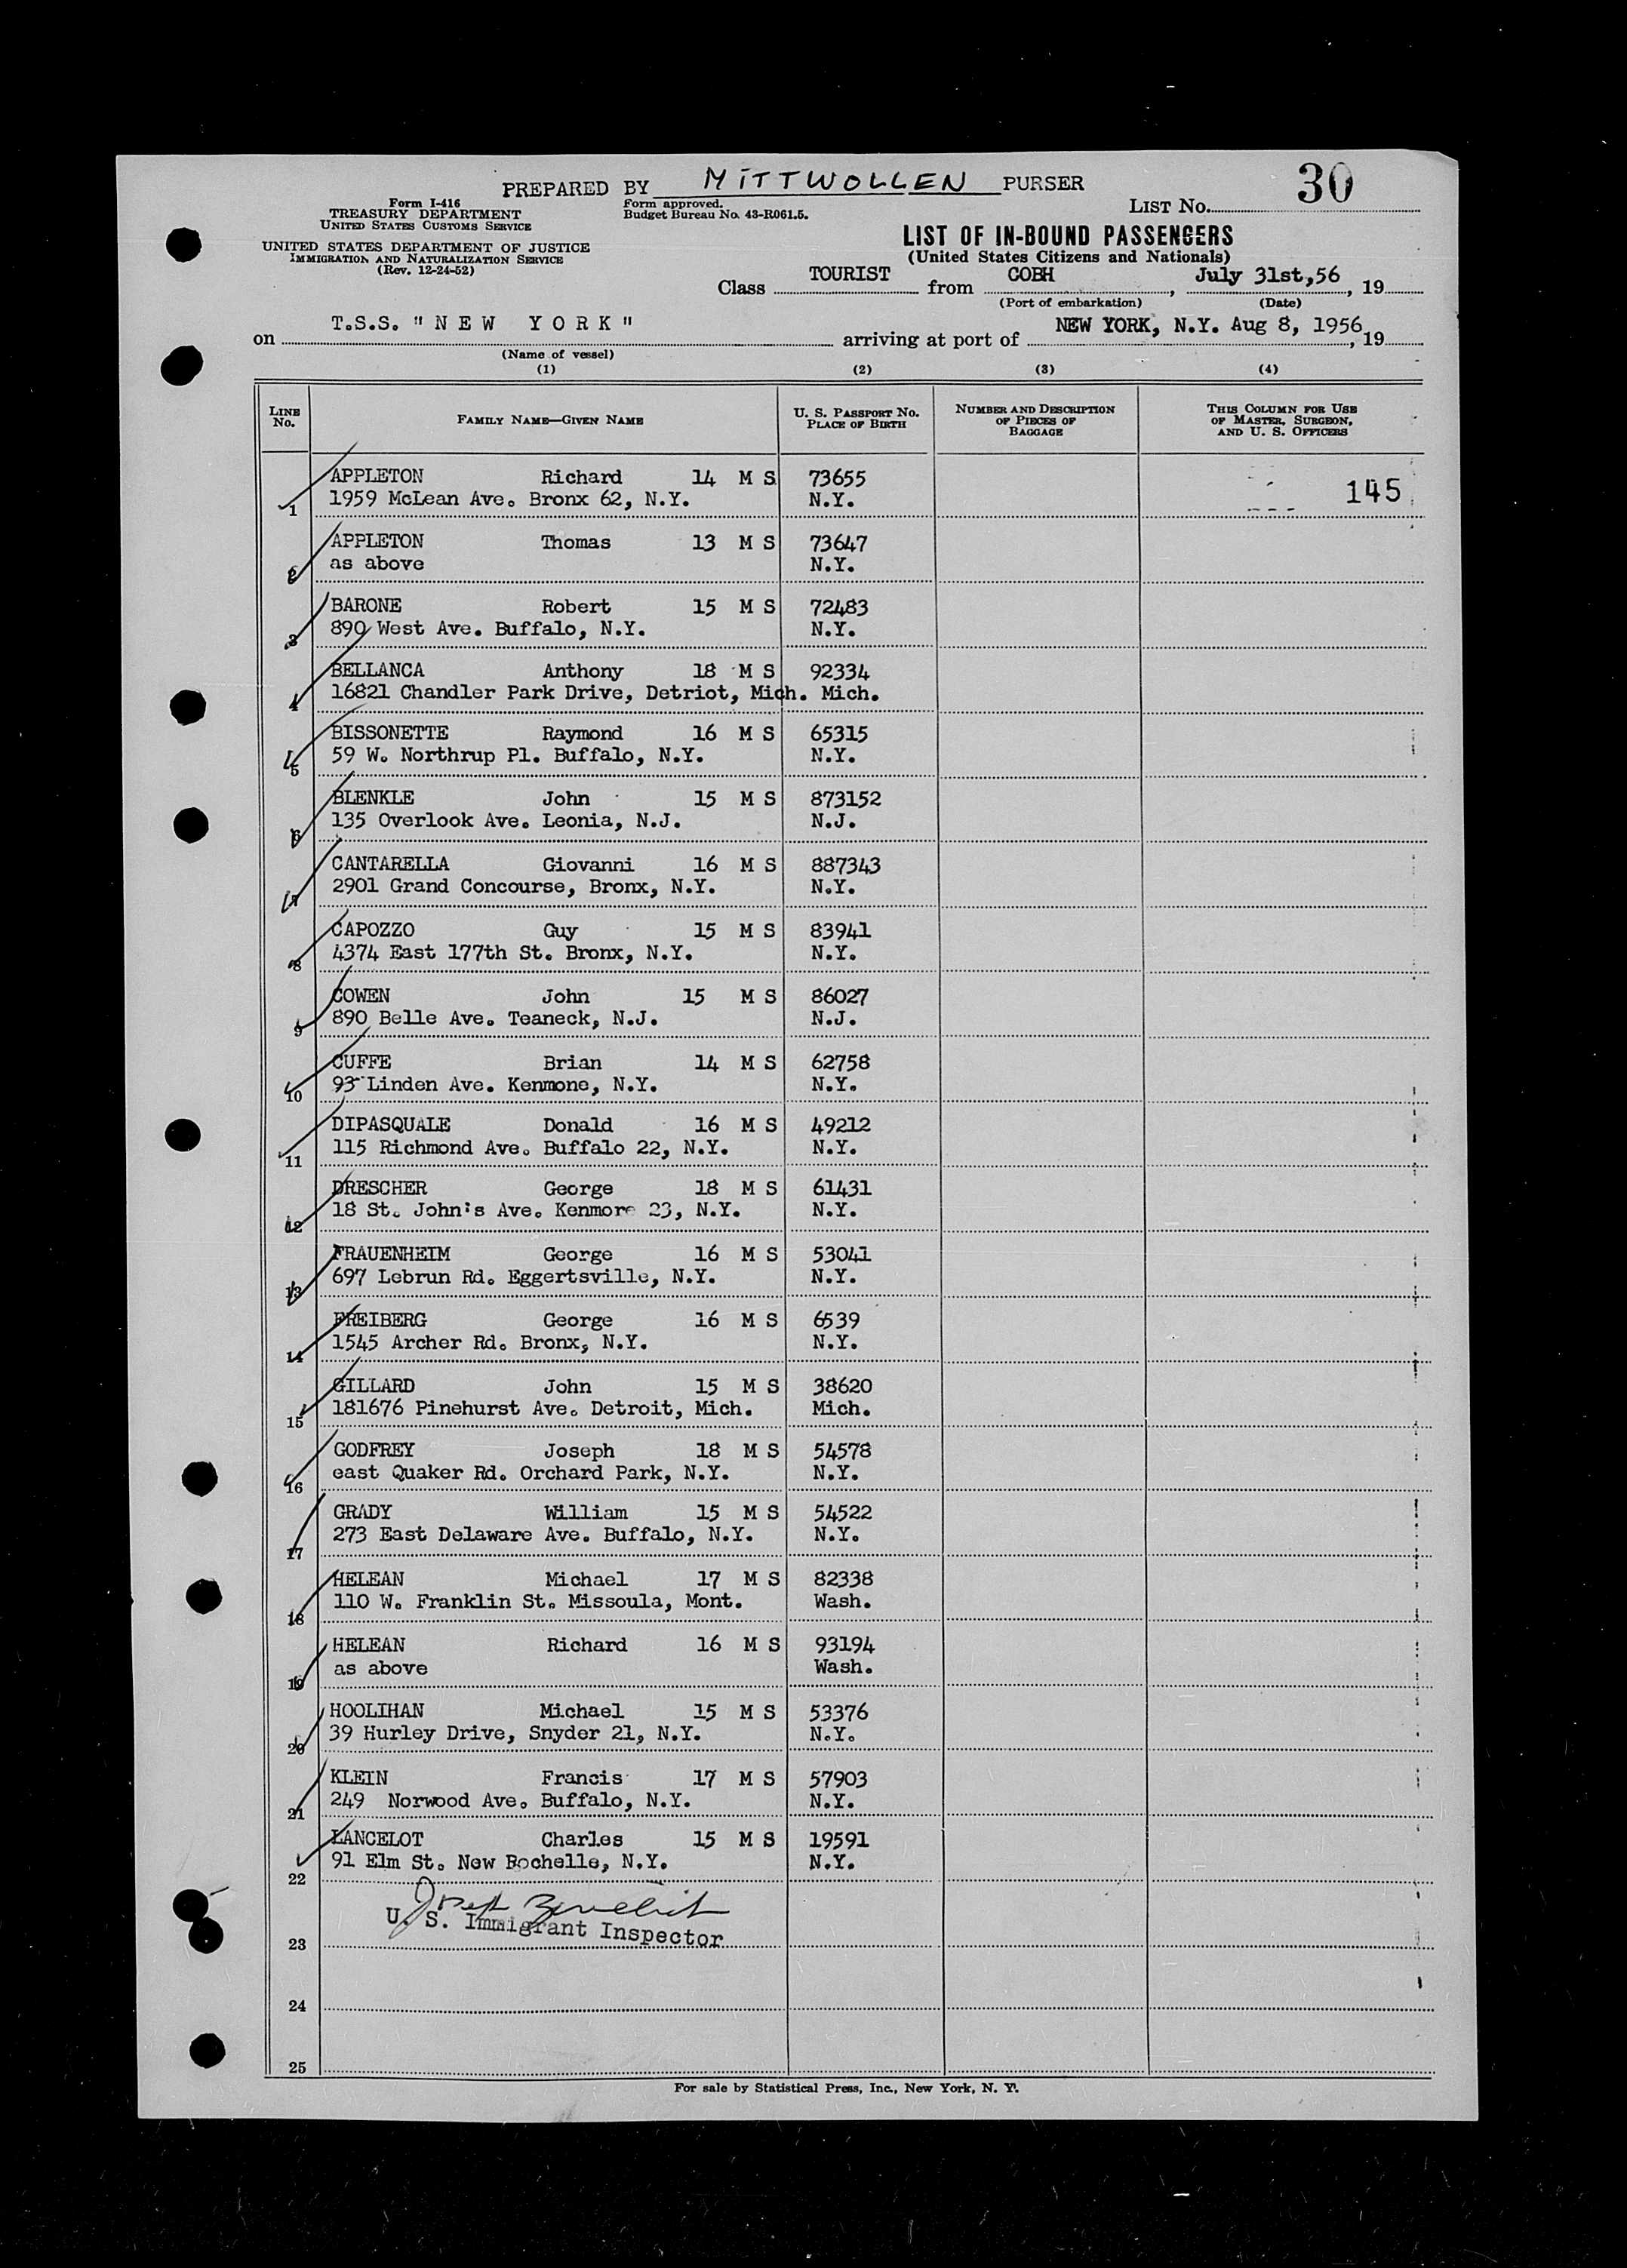 PREPARED BY MITTWOLLEN PURSER
30
Form I-416
TREASURY DEPARTMENT
UNITED STATES CUSTOMS SERVICE
UNITED STATES DEPARTMENT OF JUSTICE
IMMIGRATION AND NATURALIZATION SERVICE
(Rev. 12-24-52)
Form approved.
Budget Bureau No. 43-R061.5.
LIST No.
LIST OF IN-BOUND PASSENGERS
(United States Citizens and Nationals)
Class TOURIST from COBH, July 31st,56, 19
(Port of embarkation) (Date)
on T.S.S. "NEW YORK" arriving at port of NEW YORK, N.Y. Aug 8, 1956, 19
(Name of vessel)
(1) (2) (3) (4)
LINE No.
FAMILY NAME—GIVEN NAME
U. S. PASSPORT No.
PLACE OF BIRTH
NUMBER AND DESCRIPTION OF PIECES OF BAGGAGE
THIS COLUMN FOR USE OF MASTER, SURGEON, AND U. S. OFFICERS
APPLETON Richard 14 M S 73655
145
1 1959 McLean Ave. Bronx 62, N.Y. N.Y.
APPLETON Thomas 13 M S 73647
2 as above N.Y.
BARONE Robert 15 M S 72483
3 890 West Ave. Buffalo, N.Y. N.Y.
BELLANCA Anthony 18 M S 92334
4 16821 Chandler Park Drive, Detriot, Mich. Mich.
BISSONETTE Raymond 16 M S 65315
5 59 W. Northrup Pl. Buffalo, N.Y. N.Y.
BLENKLE John 15 M S 873152
6 135 Overlook Ave. Leonia, N.J. N.J.
CANTARELLA Giovanni 16 M S 887343
7 2901 Grand Concourse, Bronx, N.Y. N.Y.
CAPOZZO Guy 15 M S 83941
8 4374 East 177th St. Bronx, N.Y. N.Y.
COWEN John 15 M S 86027
9 890 Belle Ave. Teaneck, N.J. N.J.
CUFFE Brian 14 M S 62758
10 93 Linden Ave. Kenmone, N.Y. N.Y.
DIPASQUALE Donald 16 M S 49212
11 115 Richmond Ave. Buffalo 22, N.Y. N.Y.
DRESCHER George 18 M S 61431
12 18 St. John's Ave. Kenmore 23, N.Y. N.Y.
FRAUENHEIM George 16 M S 53041
13 697 Lebrun Rd. Eggertsville, N.Y. N.Y.
FREIBERG George 16 M S 6539
14 1545 Archer Rd. Bronx, N.Y. N.Y.
GILLARD John 15 M S 38620
15 181676 Pinehurst Ave. Detroit, Mich. Mich.
GODFREY Joseph 18 M S 54578
16 east Quaker Rd. Orchard Park, N.Y. N.Y.
GRADY William 15 M S 54522
17 273 East Delaware Ave. Buffalo, N.Y. N.Y.
HELEAN Michael 17 M S 82338
18 110 W. Franklin St. Missoula, Mont. Wash.
HELEAN Richard 16 M S 93194
19 as above Wash.
HOOLIHAN Michael 15 M S 53376
20 39 Hurley Drive, Snyder 21, N.Y. N.Y.
KLEIN Francis 17 M S 57903
21 249 Norwood Ave. Buffalo, N.Y. N.Y.
LANCELOT Charles 15 M S 19591
22 91 Elm St. New Rochelle, N.Y. N.Y.
Joseph
U. S. Immigrant Inspector
23
24
25
For sale by Statistical Press, Inc., New York, N. Y.